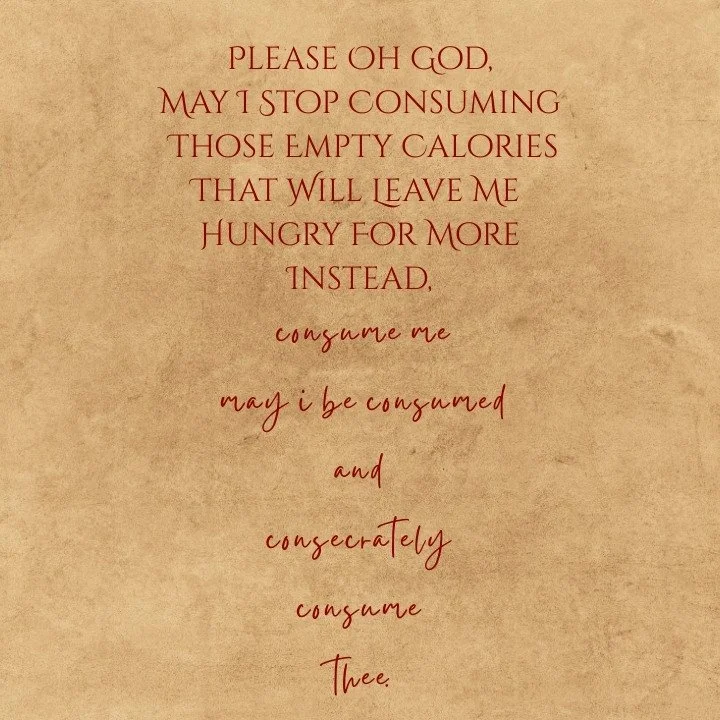 Please Oh God,
May I Stop Consuming
Those Empty Calories
That Will Leave Me
Hungry For More
Instead,
consume me
may i be consumed
and
consecrately
consume
thee.